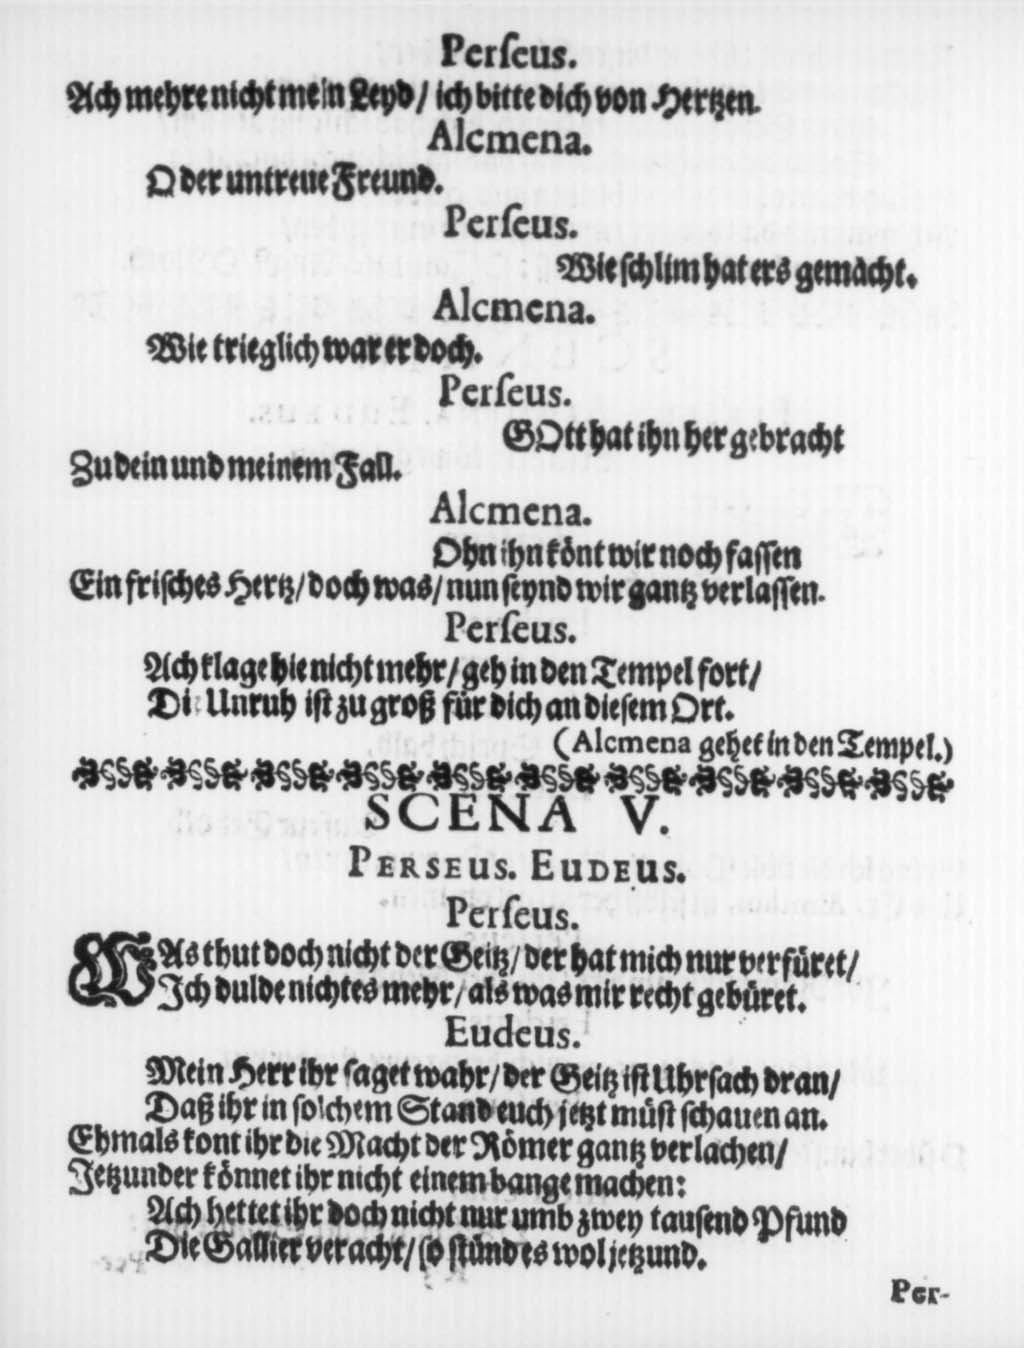 Perſeus.
Ach mehre nicht mein Leyd/ ich bitte dich von Hertzen.
Alcmena.
O der untreue Freund.
Perſeus.
Wie ſchlim hat ers gemacht.
Alcmena.
Wie trieglich war er doch.
Perſeus.
GOtt hat ihn her gebracht
Zu dein und meinem Fall.
Alcmena.
Ohn ihn könt wir noch faſſen
Ein friſches Hertz/ doch was/ nun ſeynd wir gantz verlaſſen.
Perſeus.
Ach klage hie nicht mehr/ geh in den Tempel fort/
Die Unruh iſt zu groß für dich an dieſem Ort.
(Alcmena gehet in den Tempel.)
SCENA V.
PERSEUS. EUDEUS.
Perſeus.
WAs thut doch nicht der Geitz/ der hat mich nur verfüret/
Ich dulde nichtes mehr/ als was mir recht gebüret.
Eudeus.
Mein Herr ihr ſaget wahr/ der Geitz iſt Uhrſach dran/
Daß ihr in ſolchem Stand euch jetzt müſt ſchauen an.
Ehmals kont ihr die Macht der Römer gantz verlachen/
Jetzunder könnet ihr nicht einem bange machen:
Ach hettet ihr doch nicht nur umb zwey tauſend Pfund
Die Gallier veracht/ ſo ſtünd es wol jetzund.
Per-